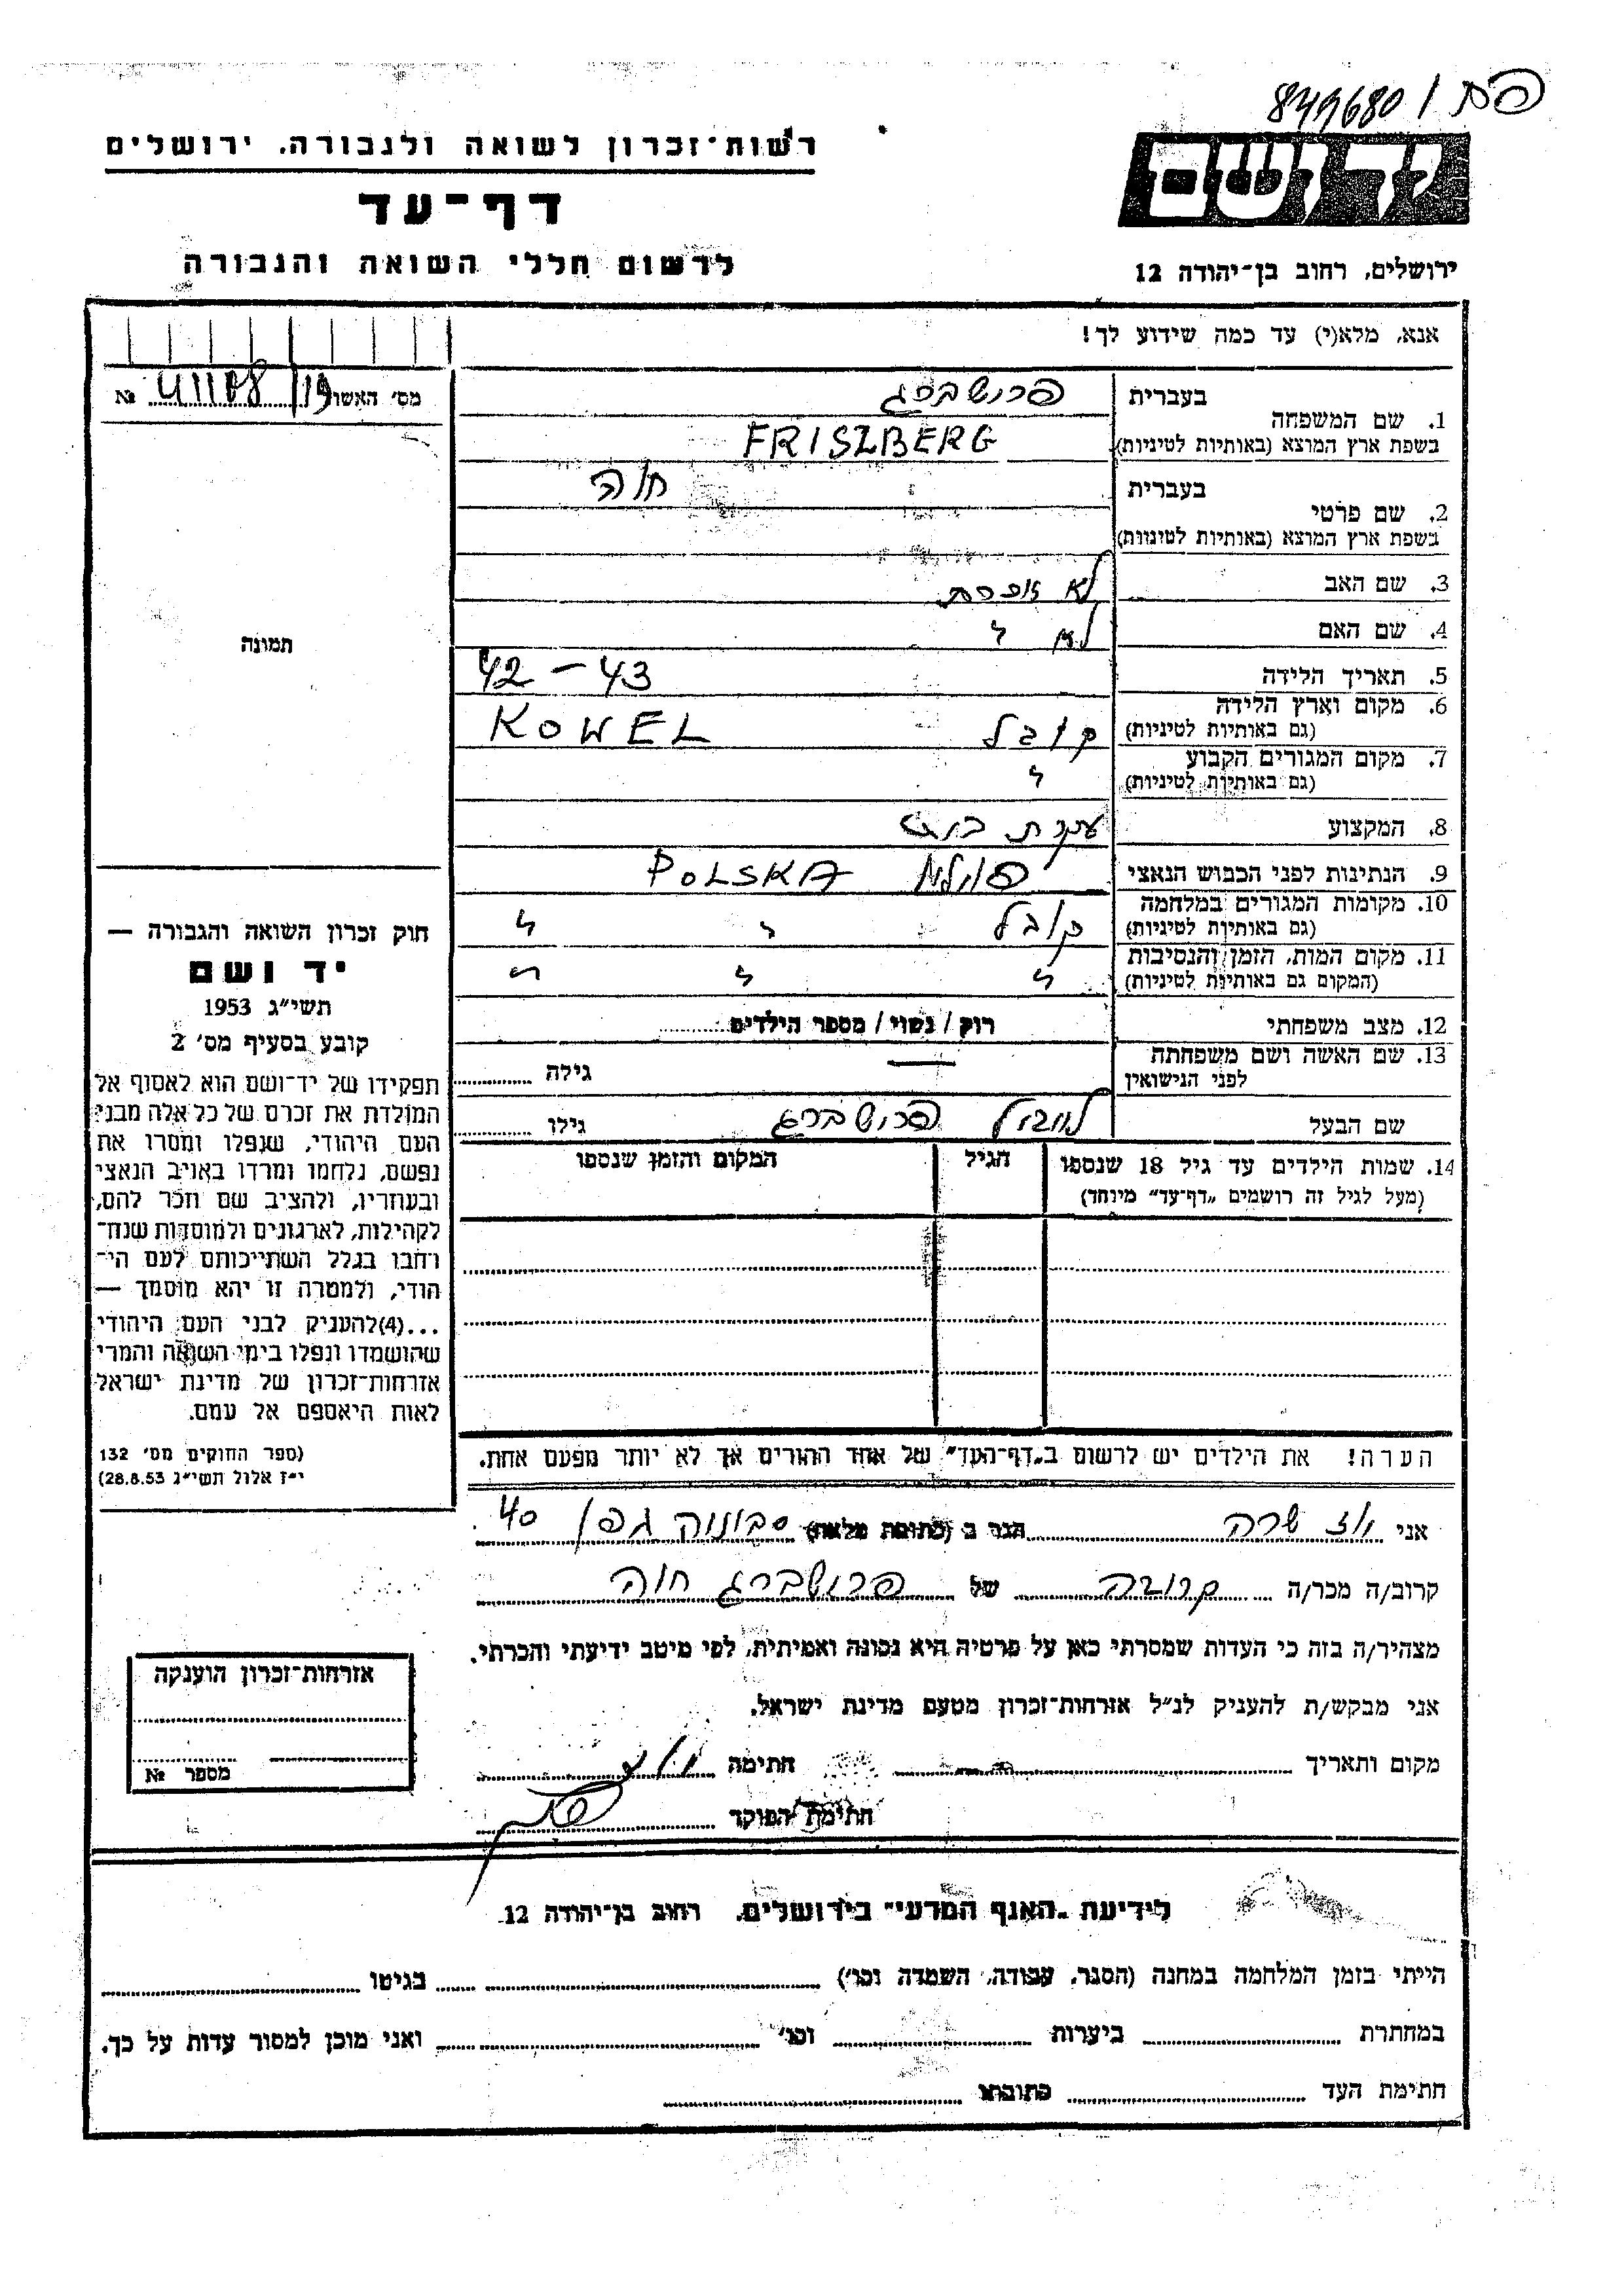 פת / 849680
רשות־זכרון לשואה ולגבורה. ירושלים
יד ושם
דף־עד
לרשום חללי השואה והגבורה
ירושלים, רחוב בן־יהודה 12
אנא, מלא(י) עד כמה שידוע לך!
מס׳ האשה 19/ 41108 №
בעברית פרושברג
1. שם המשפחה
בשפת ארץ המוצא (באותיות לטיניות) FRISZBERG
בעברית חוה
2. שם פרטי
בשפת ארץ המוצא (באותיות לטיניות)
3. שם האב לא
4. שם האם לא
5. תאריך הלידה 42 – 43
6. מקום וארץ הלידה
(גם באותיות לטיניות) קובל KOWEL
7. מקום המגורים הקבוע
(גם באותיות לטיניות) "
8. המקצוע עקרת בית
9. הנתינות לפני הכבוש הנאצי פולנית POLSKA
10. מקומות המגורים במלחמה
(גם באותיות לטיניות) קובל " "
11. מקום המות, הזמן והנסיבות
(המקום גם באותיות לטיניות) " " "
12. מצב משפחתי רוק / נשוי / מספר הילדים
13. שם האשה ושם משפחתה
לפני הנישואין — גילה
שם הבעל פרושברג גילו
14. שמות הילדים עד גיל 18 שנספו הגיל המקום והזמן שנספו
(מעל לגיל זה רושמים „דף־עד״ מיוחד)
תמונה
חוק זכרון השואה והגבורה —
יד ושם
תשי״ג 1953
קובע בסעיף מס׳ 2
תפקידו של יד־ושם הוא לאסוף אל
המולדת את זכרם של כל אלה מבני
העם היהודי, שנפלו ומסרו את
נפשם, נלחמו ומרדו באויב הנאצי
ובעוזריו, ולהציב שם וזכר להם,
לקהילות, לארגונים ולמוסדות שנח־
רחבו בגלל השתייכותם לעם הי־
הודי, ולמטרה זו יהא מוסמך —
...(4)להעניק לבני העם היהודי
שהושמדו ונפלו בימי השואה והמרי
אזרחות־זכרון של מדינת ישראל
לאות היאספם אל עמם.
(ספר החוקים מס׳ 132
י״ז אלול תשי״ג 28.8.53)
הערה! את הילדים יש לרשום ב„דף־העד״ של אחד ההורים אך לא יותר מפעם אחת.
אני וזז שרה הגר ב (כתובת מלאה) גפן 40
קרוב/ה מכר/ה קרובה של פרושברג חוה
מצהיר/ה בזה כי העדות שמסרתי כאן על פרטיה היא נכונה ואמיתית, לפי מיטב ידיעתי והכרתי.
אני מבקש/ת להעניק לנ״ל אזרחות־זכרון מטעם מדינת ישראל.
מקום ותאריך חתימה
חתימת הפוקד
אזרחות־זכרון הוענקה
מספר №
לידיעת „האגף המדעי״ בירושלים. רחוב בן־יהודה 12
הייתי בזמן המלחמה במחנה (הסגר, עבודה, השמדה וכו׳) בגיטו
במחתרת ביערות וכו׳ ואני מוכן למסור עדות על כך.
חתימת העד כתובתו